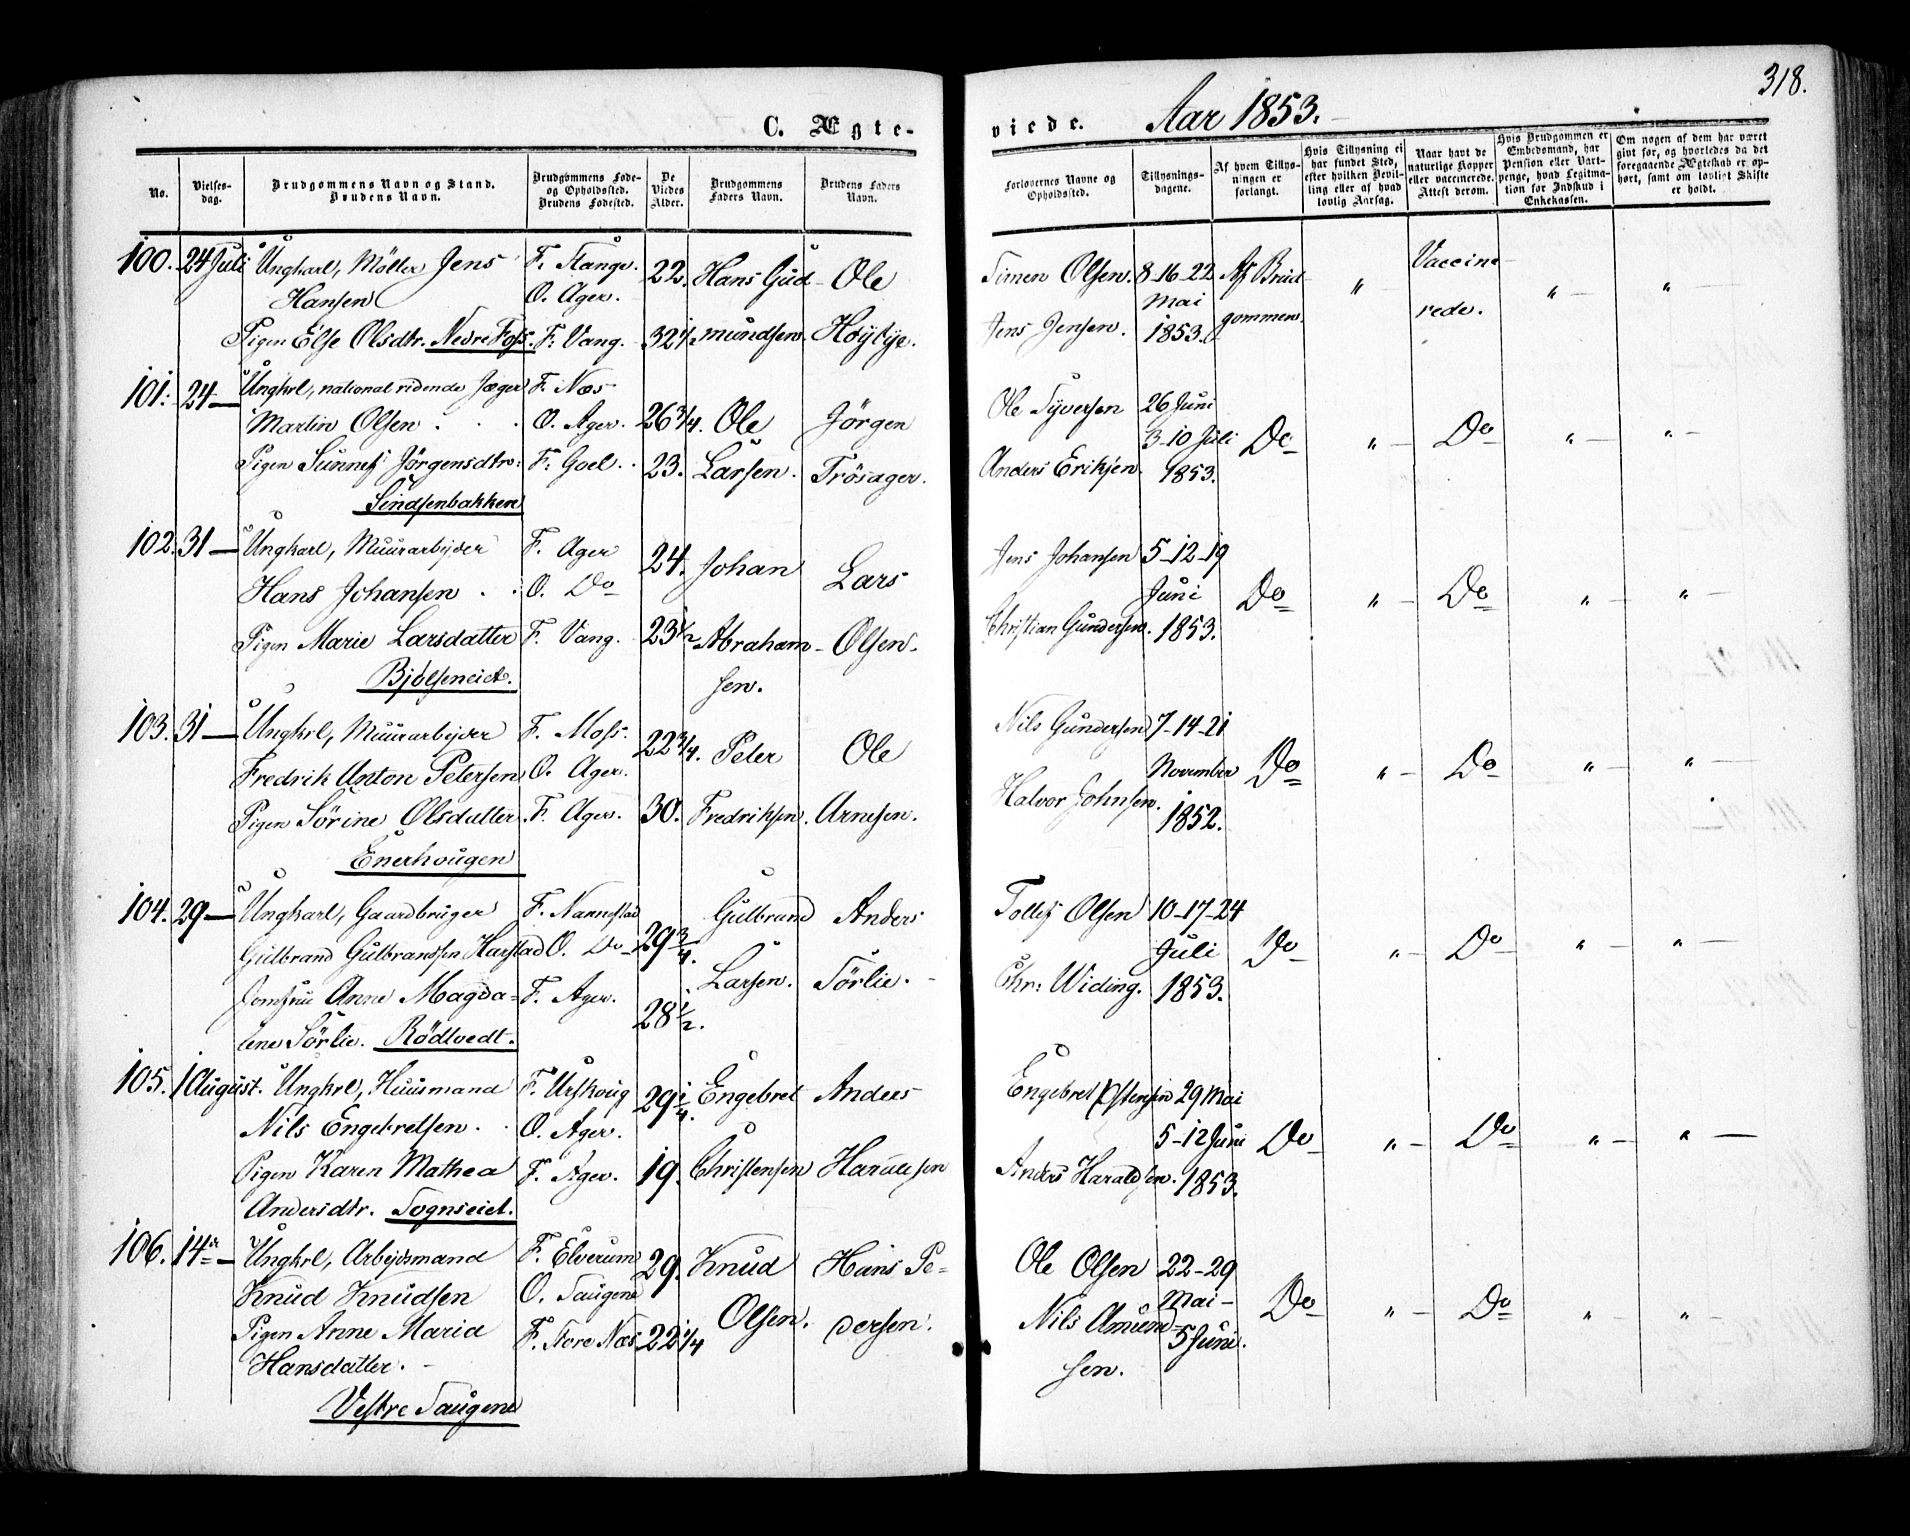 318.
C. Ægte-
viede. Aar 1853.
No.
Vielses-
dag.
Brudgommens Navn og Stand.
Brudens Navn.
Brudgommens Føde-
og Opholdssted.
Brudens Fødested.
De
Viedes
Alder.
Brudgommens
Faders Navn.
Brudens Faders
Navn.
Forlovernes Navne og
Opholdssted.
Tillysnings-
dagene.
Af hvem Tillys-
ningen er
forlangt.
Hvis Tillysning ei
har fundet Sted,
efter hvilken Bevil-
ling eller af hvad
lovlig Aarsag.
Naar havt de
naturlige Kopper
eller vaccinerede.
Attest derom.
Hvis Brudgommen er
Embedsmand, har
Pension eller Vart-
penge, hvad Legitma-
tion for Indskud i
Enkekassen.
Om nogen af dem har været
givt før, og hvorledes da det
foregaaende Ægteskab er op-
hørt, samt om lovligt Skifte
er holdt.
100. 24 Juli Ungkarl, Möller Jens F. Stange. 22. Hans Gud- Ole Simen Olsen. 8-16-22 Af Brud- " Vaccine- " "
Hansen O. Ager. Mai
Pigen Else Olsdtr. Nedre Foss. F. Vang. 32¼ mundsen. Høytye. Jens Jensen. 1853. gommen. rede.
101. 24 — Ungkrl, national ridende Jæger F. Næs
Martin Olsen O. Ager. 26¾. Ole Jörgen Ole Syversen 26 Juni
3-10 Juli Do " Do " "
Pigen Sunnef: Jörgensdtr: F. Goel. 23. Larsen. Trösager. Anders Eriksen. 1853.
Sindsenbakken
102. 31 — Ungkarl, Muurarbyder F. Ager 24. Johan Lars Jens Johansen 5-12-19
Hans Johansen O. Do Juni Do " Do " "
Pigen Marie Larsdatter F. Vang. 23½ Abraham- Olsen. Christian Gundersen. 1853.
Bjølseneiet. sen.
103. 31 — Ungkrl, Muurarbyder F. Moss. 22¾. Peter Ole Nils Gundersen 7-14-21
Fredrik Anton Petersen O. Ager. November Do " Do " "
Pigen Sörine Olsdatter. F. Ager. 30. Fredriksen. Arnesen. Halvor Johnsen. 1852.
Enerhougen
104. 29 — Ungkarl, Gaardbruger F. Nannestad Gulbrand Anders Tollef Olsen 10-17-24
Gulbrand Gulbrandsen Harstad O. Do 29¾. Juli Do " Do " "
Jomfru Anne Magda- F. Ager. Larsen. Sörlie. Chr: Widing. 1853.
lene Sörlie. Rödtvedt. 28½.
105. 1 August. Ungkrl, Huusmand F. Urskoug 29¼. Engebret Anders Engebret Ostensen 29 Mai
Nils Engebretsen. O. Ager. 5-12 Juni Do " Do " "
Pigen Karen Mathea F. Ager. 19. Christensen Haraldsen Anders Haraldsen. 1853.
Andersdtr. Sognseiet.
106. 14de — Ungkrl, Arbejdsmand F. Elverum 29. Knud Hans Pe- Ole Olsen 22-29
Knud Knudsen O. Saugene Mai- Do " Do " "
Pigen Anne Maria F. Store Næs 22¼ Olsen. dersen. Nils Amund- 5 Juni.
Hansdatter. sen.
Vestre Saugene